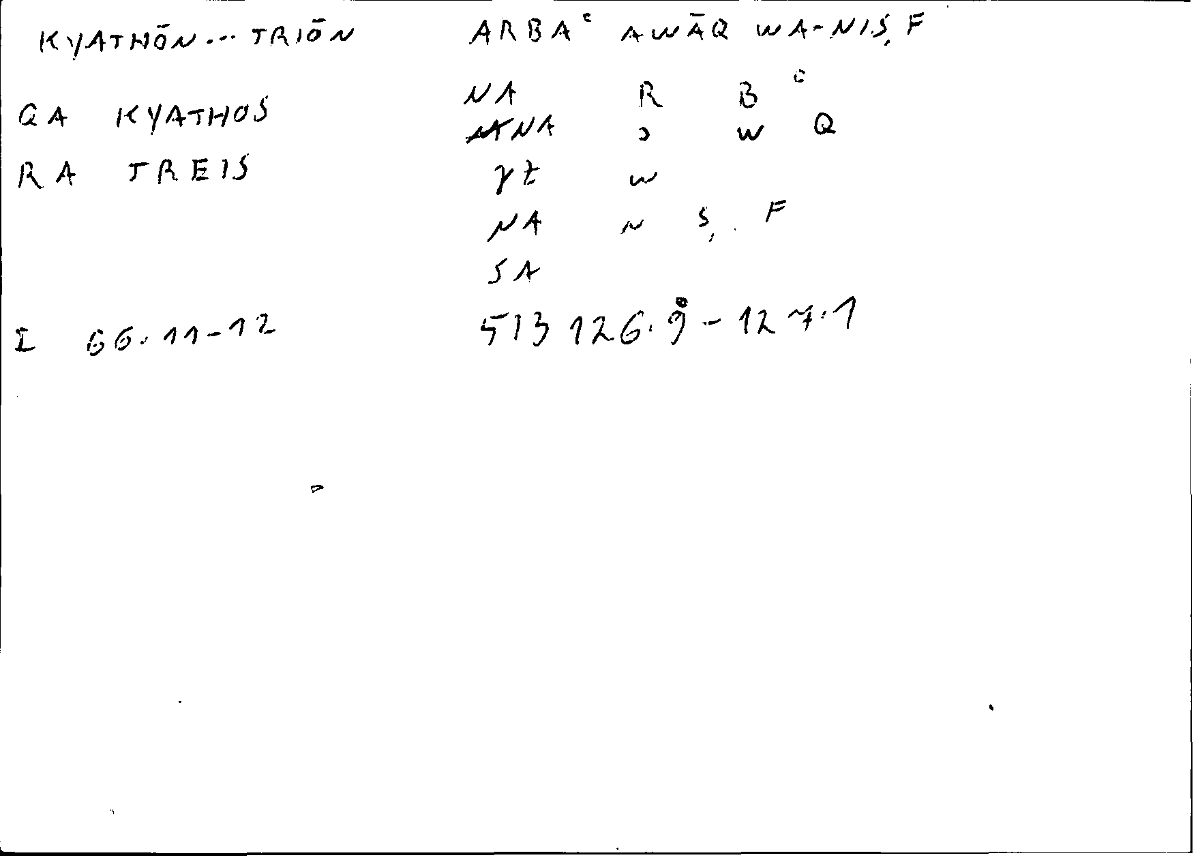 KYATHŌN... TRIŌN ARBAᶜ AWĀQ WA-NIṢF
NA R B ᶜ
QA KYATHOS
NA ɔ W Q
RA TREIS γt W
NA N Ṣ F
SA
I 66.11-12 513 126.9-127.1